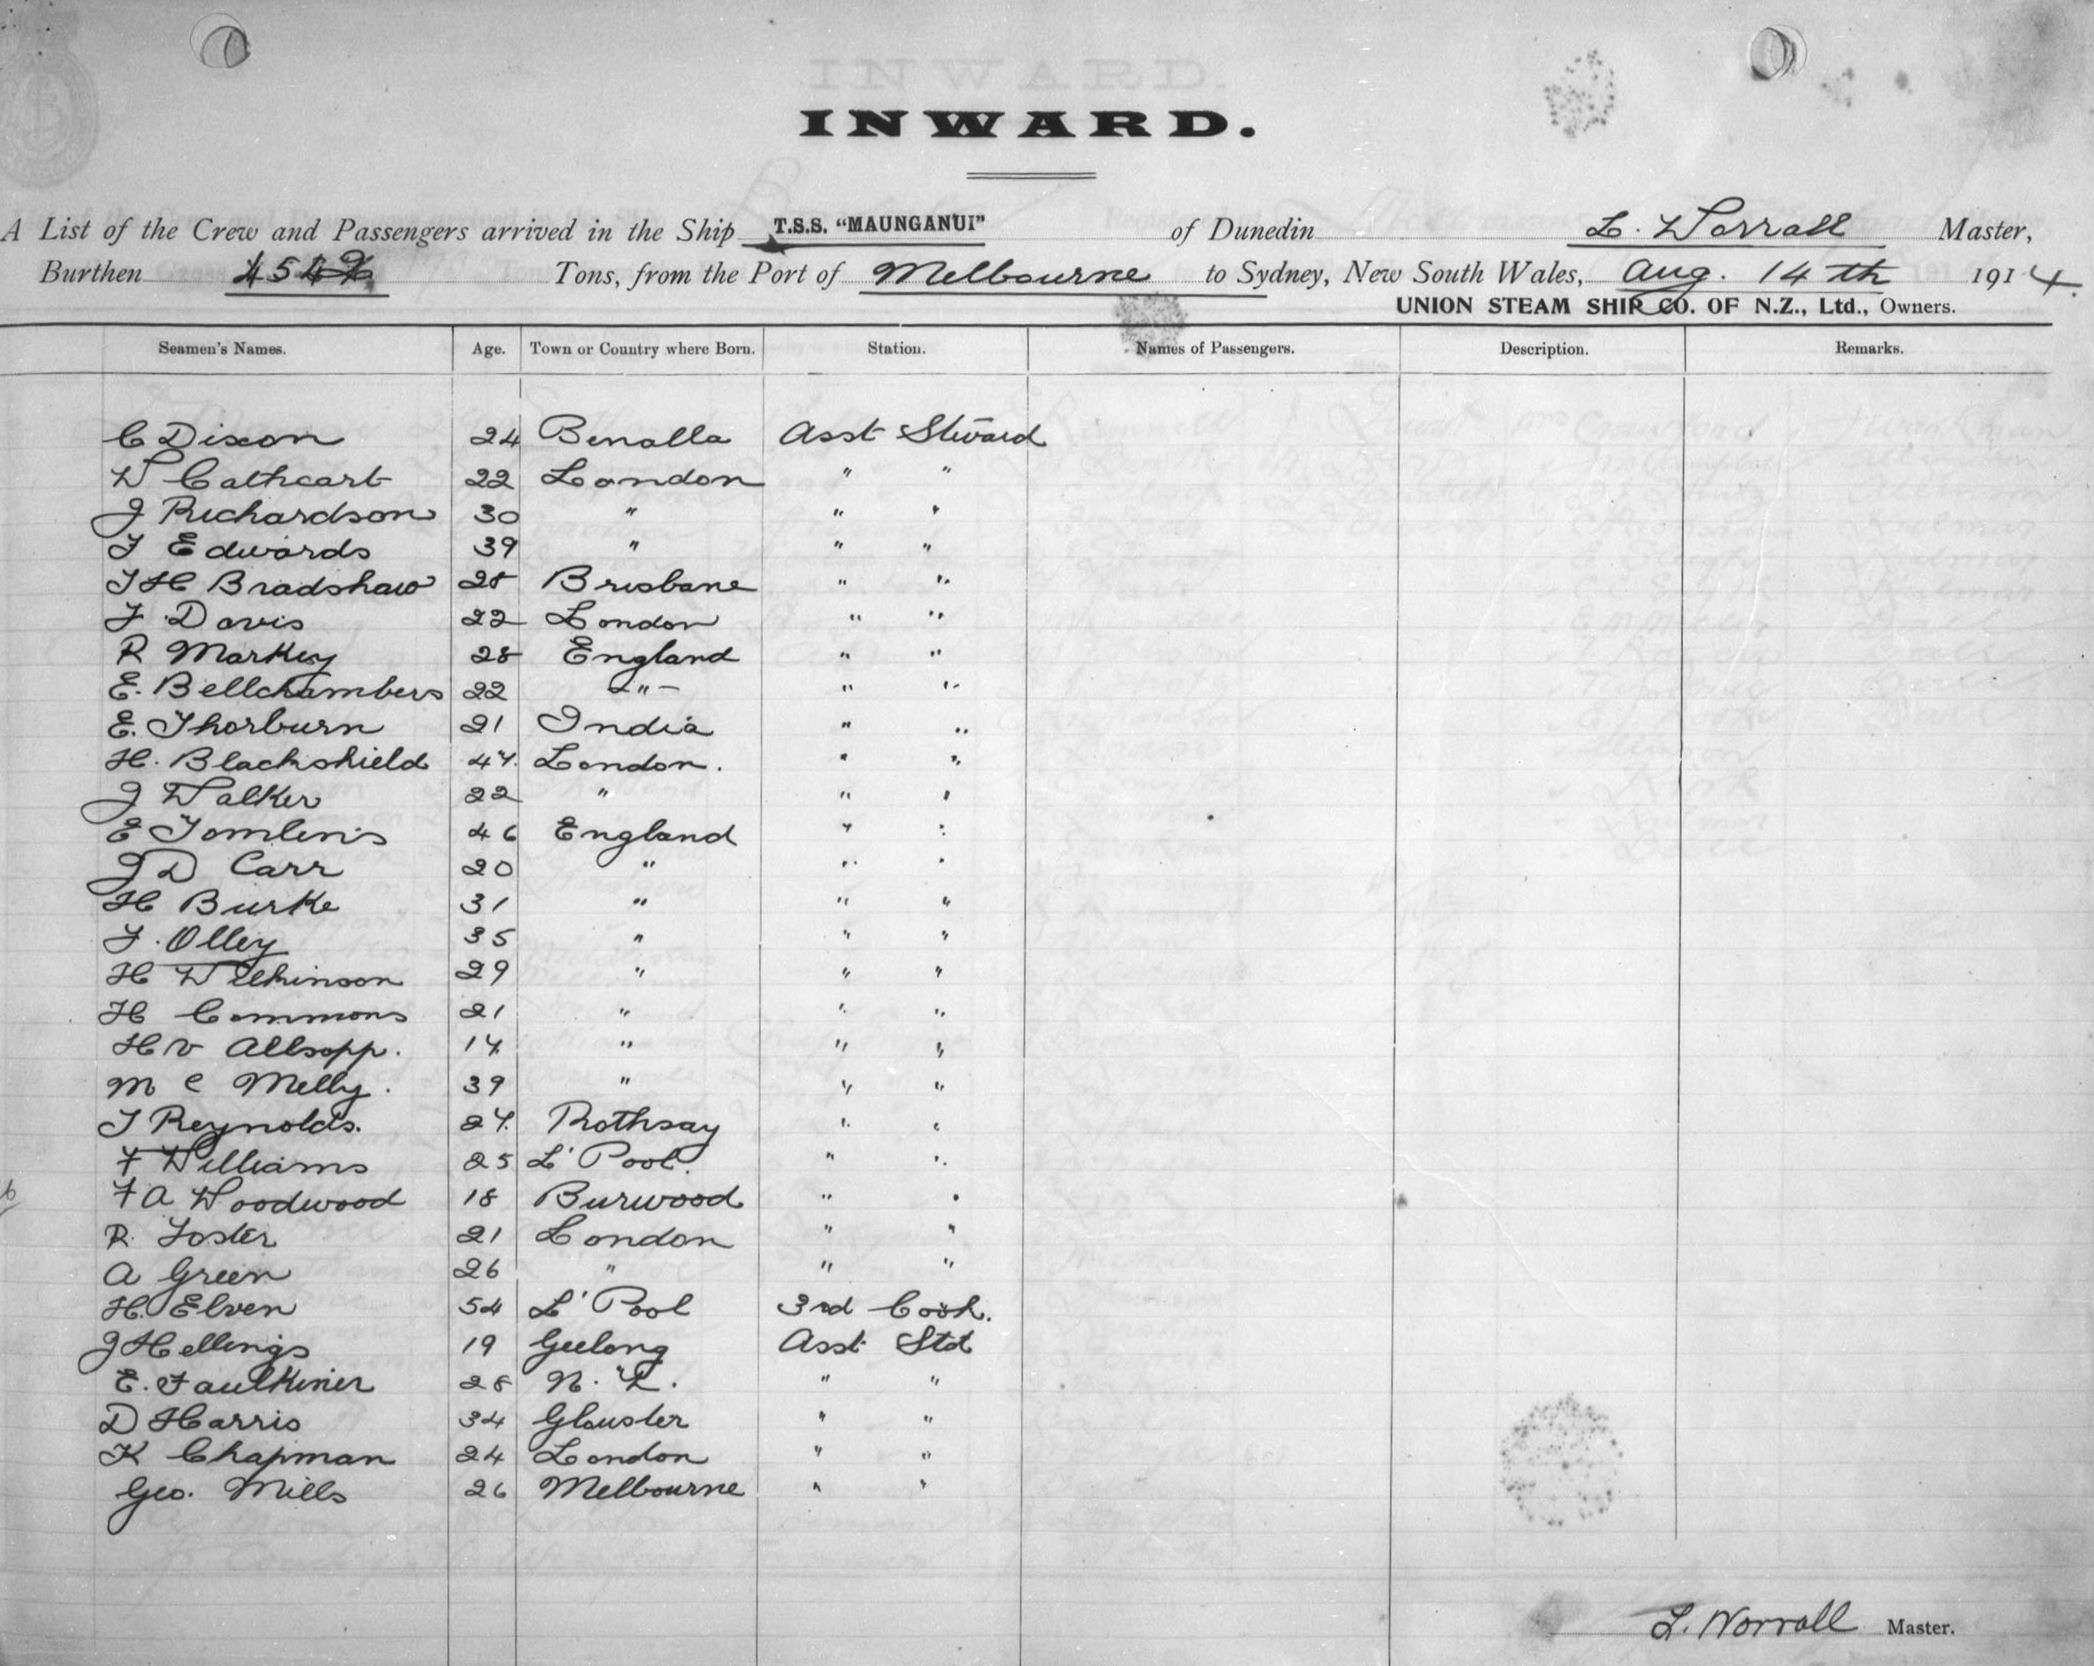 INWARD.
A List of the Crew and Passengers arrived in the Ship T.S.S. "MAUNGANUI" of Dunedin L. Worrall Master,
Burthen Tons, from the Port of Melbourne to Sydney, New South Wales, Aug. 14th 1914.
UNION STEAM SHIP CO. OF N.Z., Ltd., Owners.
Seamen's Names. Age. Town or Country where Born. Station. Names of Passengers. Description. Remarks.
C Dixon 24 Benalla Asst Steward
W Cathcart 22 London " "
J Richardson 30 " " "
T Edwards 39 " " "
T H Bradshaw 28 Brisbane " "
F Davis 22 London " "
R Markey 28 England " "
E. Bellchambers 22 -"- " "
E. Thorburn 21 India " "
H. Blackshield 47. London. " "
J Walker 22 " " "
E Tomlins 46 England " "
J D Carr 20 " " "
H Burke 31 " " "
T. Olley 35 " " "
H Wilkinson 29 " " "
H Commons 21 " " "
H V Allsopp. 17. " " "
M C Melly. 39 " " "
T Reynolds. 27. Rothsay " "
F Williams 25 L'Pool. " "
F A Woodwood 18 Burwood " "
R. Foster 21 London " "
A Green 26 " " "
H. Elven 54 L'Pool 3rd Cook.
J Hellings 19 Geelong Asst Std
E. Faulkiner 28 N.Z. " "
D Harris 34 Glouster " "
K Chapman 24 London " "
Geo. Mills 26 Melbourne " "
L. Worrall Master.